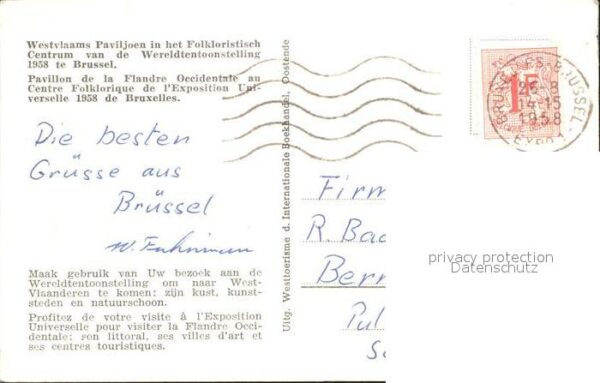 Westvlaams Paviljoen in het Folkloristisch
Centrum van de Wereldtentoonstelling
1958 te Brussel.
Pavillon de la Flandre Occidentale au
Centre Folklorique de l'Exposition Uni-
verselle 1958 de Bruxelles.
Die besten
Grüsse aus
Brüssel
Maak gebruik van Uw bezoek aan de
Wereldtentoonstelling om naar West-
Vlaanderen te komen; zijn kust, kunst-
steden en natuurschoon.
Profitez de votre visite à l'Exposition
Universelle pour visiter la Flandre Occi-
dentale; son littoral, ses villes d'art et
ses centres touristiques.
Uitg. Westtoerisme d. Internationale Boekhandel, Oostende
BRUXELLES-BRUSSEL
26-8
14-15
1958
EXPO
1F5
Firm
R. Bac
Bern
Pul
privacy protection
Datenschutz